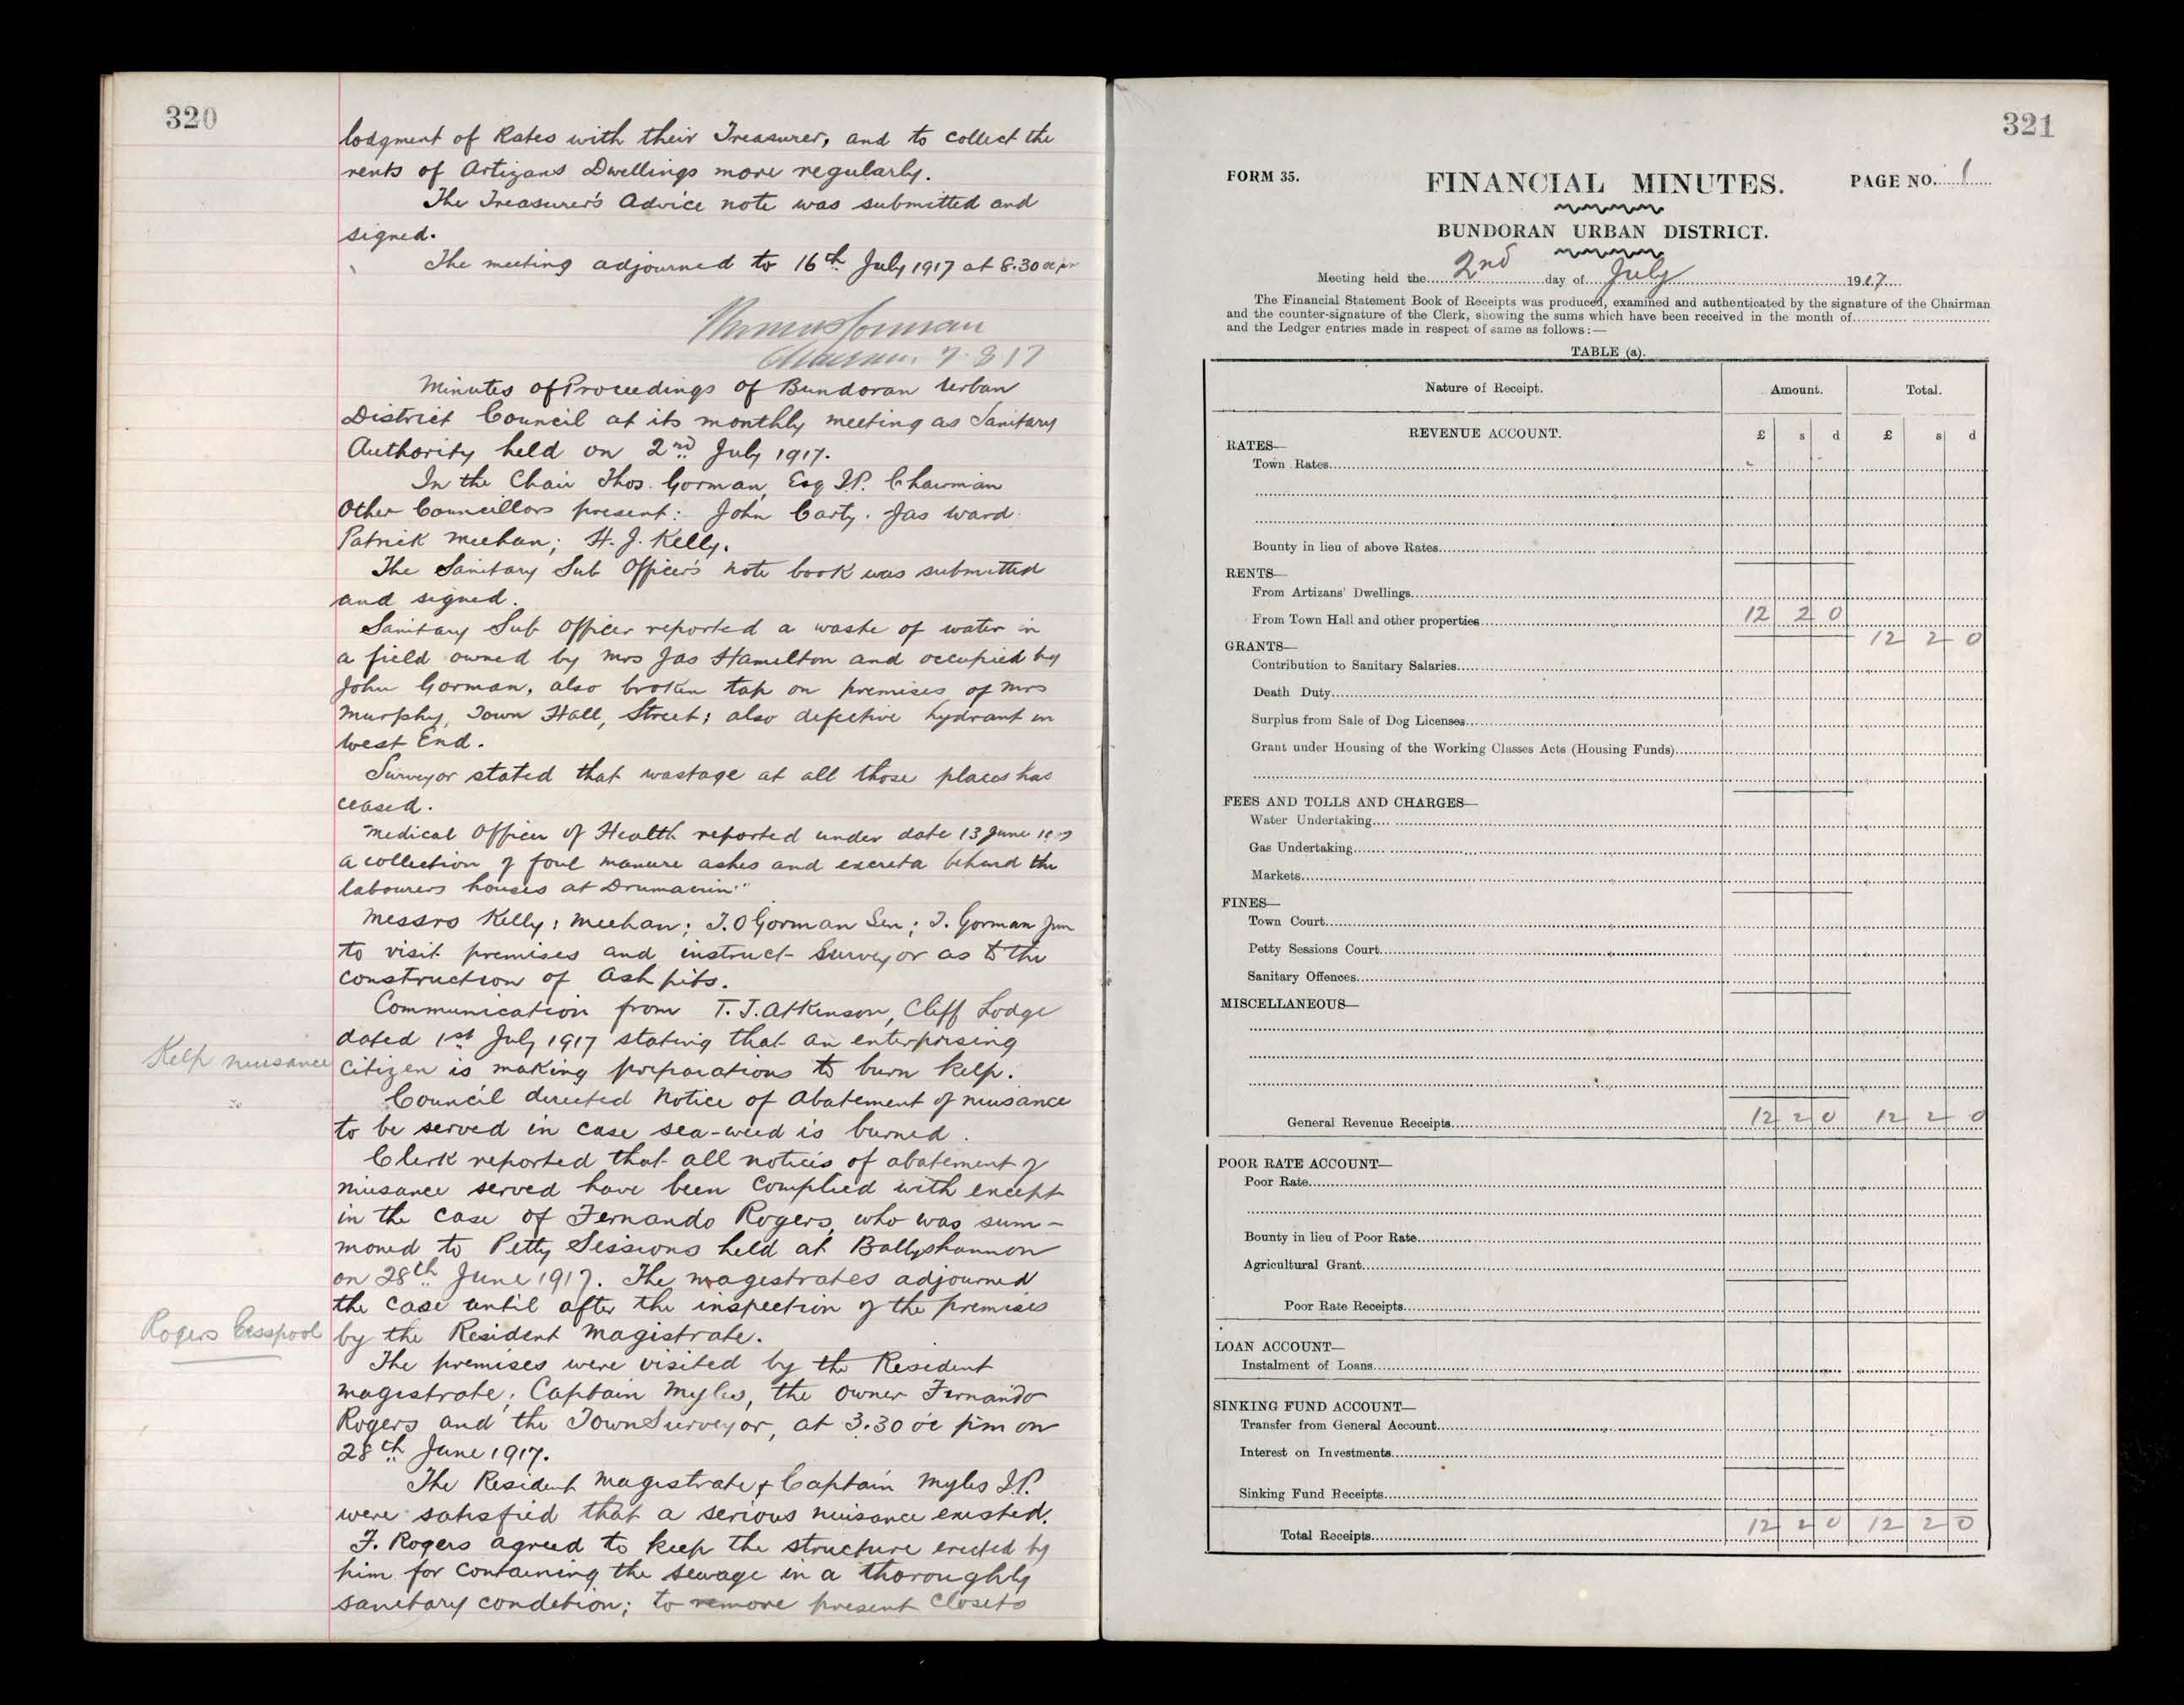 320
lodgment of Rates with their Treasurer, and to collect the
rents of Artizans Dwellings more regularly.
The Treasurer's Advice note was submitted and
signed.
The meeting adjourned to 16th July 1917 at 8.30
Thomas Gorman
Chairman. 7.8 17
Minutes of Proceedings of Bundoran Urban
District Council at its monthly meeting as Sanitary
Authority held on 2nd July 1917.
In the Chair Thos. Gorman, Esq J.P. Chairman
Other Councillors present: John Carty. Jas Ward
Patrick Meehan; H. J. Kelly.
The Sanitary Sub Officer's note book was submitted
and signed.
Sanitary Sub Officer reported a waste of water in
a field owned by Mrs Jas Hamilton and occupied by
John Gorman, also broken tap on premises of Mrs
Murphy, Town Hall, Street; also defective hydrant in
West End.
Surveyor stated that wastage at all those places has
ceased.
Medical Officer of Health reported under date 13 June
a collection of foul manure ashes and excreta behind the
labourers houses at Drumacrin"
Messrs Kelly; Meehan; T. O Gorman Sen; T. Gorman Jun
to visit premises and instruct Surveyor as to the
construction of ash pits.
Communication from T. J. Atkinson, Cliff Lodge
dated 1st July 1917 stating that an enterprising
Kelp nuisance
citizen is making preparations to burn kelp.
Council directed Notice of Abatement of nuisance
to be served in case sea-weed is burned.
Clerk reported that all notices of abatement of
nuisance served have been complied with except
in the case of Fernando Rogers, who was sum-
moned to Petty Sessions held at Ballyshannon
on 28th June 1917. The magistrates adjourned
the case until after the inspection of the premises
Rogers Cesspool
by the Resident Magistrate.
The premises were visited by the Resident
Magistrate, Captain Myles, the owner Fernando
Rogers and the Town Surveyor, at 3.30 oc pm on
28th June 1917.
The Resident Magistrate & Captain Myles J.P.
were satisfied that a serious nuisance existed.
F. Rogers agreed to keep the structure erected by
him for containing the sewage in a thoroughly
sanitary condition; to remove present closets
321
FORM 35.
FINANCIAL MINUTES.
PAGE NO. 1
BUNDORAN URBAN DISTRICT.
Meeting held the 2nd day of July 1917
The Financial Statement Book of Receipts was produced, examined and authenticated by the signature of the Chairman
and the counter-signature of the Clerk, showing the sums which have been received in the month of
and the Ledger entries made in respect of same as follows:—
TABLE (a).
Nature of Receipt. Amount. Total.
REVENUE ACCOUNT. £ s d £ s d
RATES—
Town Rates
Bounty in lieu of above Rates
RENTS—
From Artizans' Dwellings
From Town Hall and other properties 12 2 0
12 2 0
GRANTS—
Contribution to Sanitary Salaries
Death Duty
Surplus from Sale of Dog Licenses
Grant under Housing of the Working Classes Acts (Housing Funds)
FEES AND TOLLS AND CHARGES—
Water Undertaking
Gas Undertaking
Markets
FINES—
Town Court
Petty Sessions Court
Sanitary Offences
MISCELLANEOUS—
General Revenue Receipts 12 2 0 12 2 0
POOR RATE ACCOUNT—
Poor Rate
Bounty in lieu of Poor Rate
Agricultural Grant
Poor Rate Receipts
LOAN ACCOUNT—
Instalment of Loans
SINKING FUND ACCOUNT—
Transfer from General Account
Interest on Investments
Sinking Fund Receipts
Total Receipts 12 2 0 12 2 0